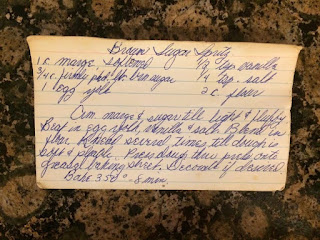 Brown Sugar Spritz
1 c. marge. softened 1/2 tsp vanilla
3/4 c. firmly pkd. lt. brn sugar 1/4 tsp. salt
1 egg yolk 2 c. flour
Crm. marge & sugar till light & fluffy
Beat in egg yolk, vanilla & salt. Blend in
flour. Knead several times till dough is
soft & pliable. Press dough thru press, onto
greased baking sheet. Decorate if desired.
Bake 350° - 8 min.